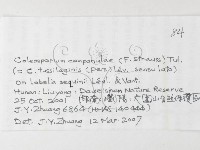 84
Coleosporium campanulae (F. Strauss) Tul.
(= C. tussilaginis (Pers.) Lév. sensu lato)
On Lobelia sequinii Lévl. & Vant.
Hunan: Liuyang: Daweishan Nature Reserve
25 OCT. 2001
J.Y. Zhuang 6864 (HMAS 140444)
Det. J.Y. Zhuang 12 Mar. 2007